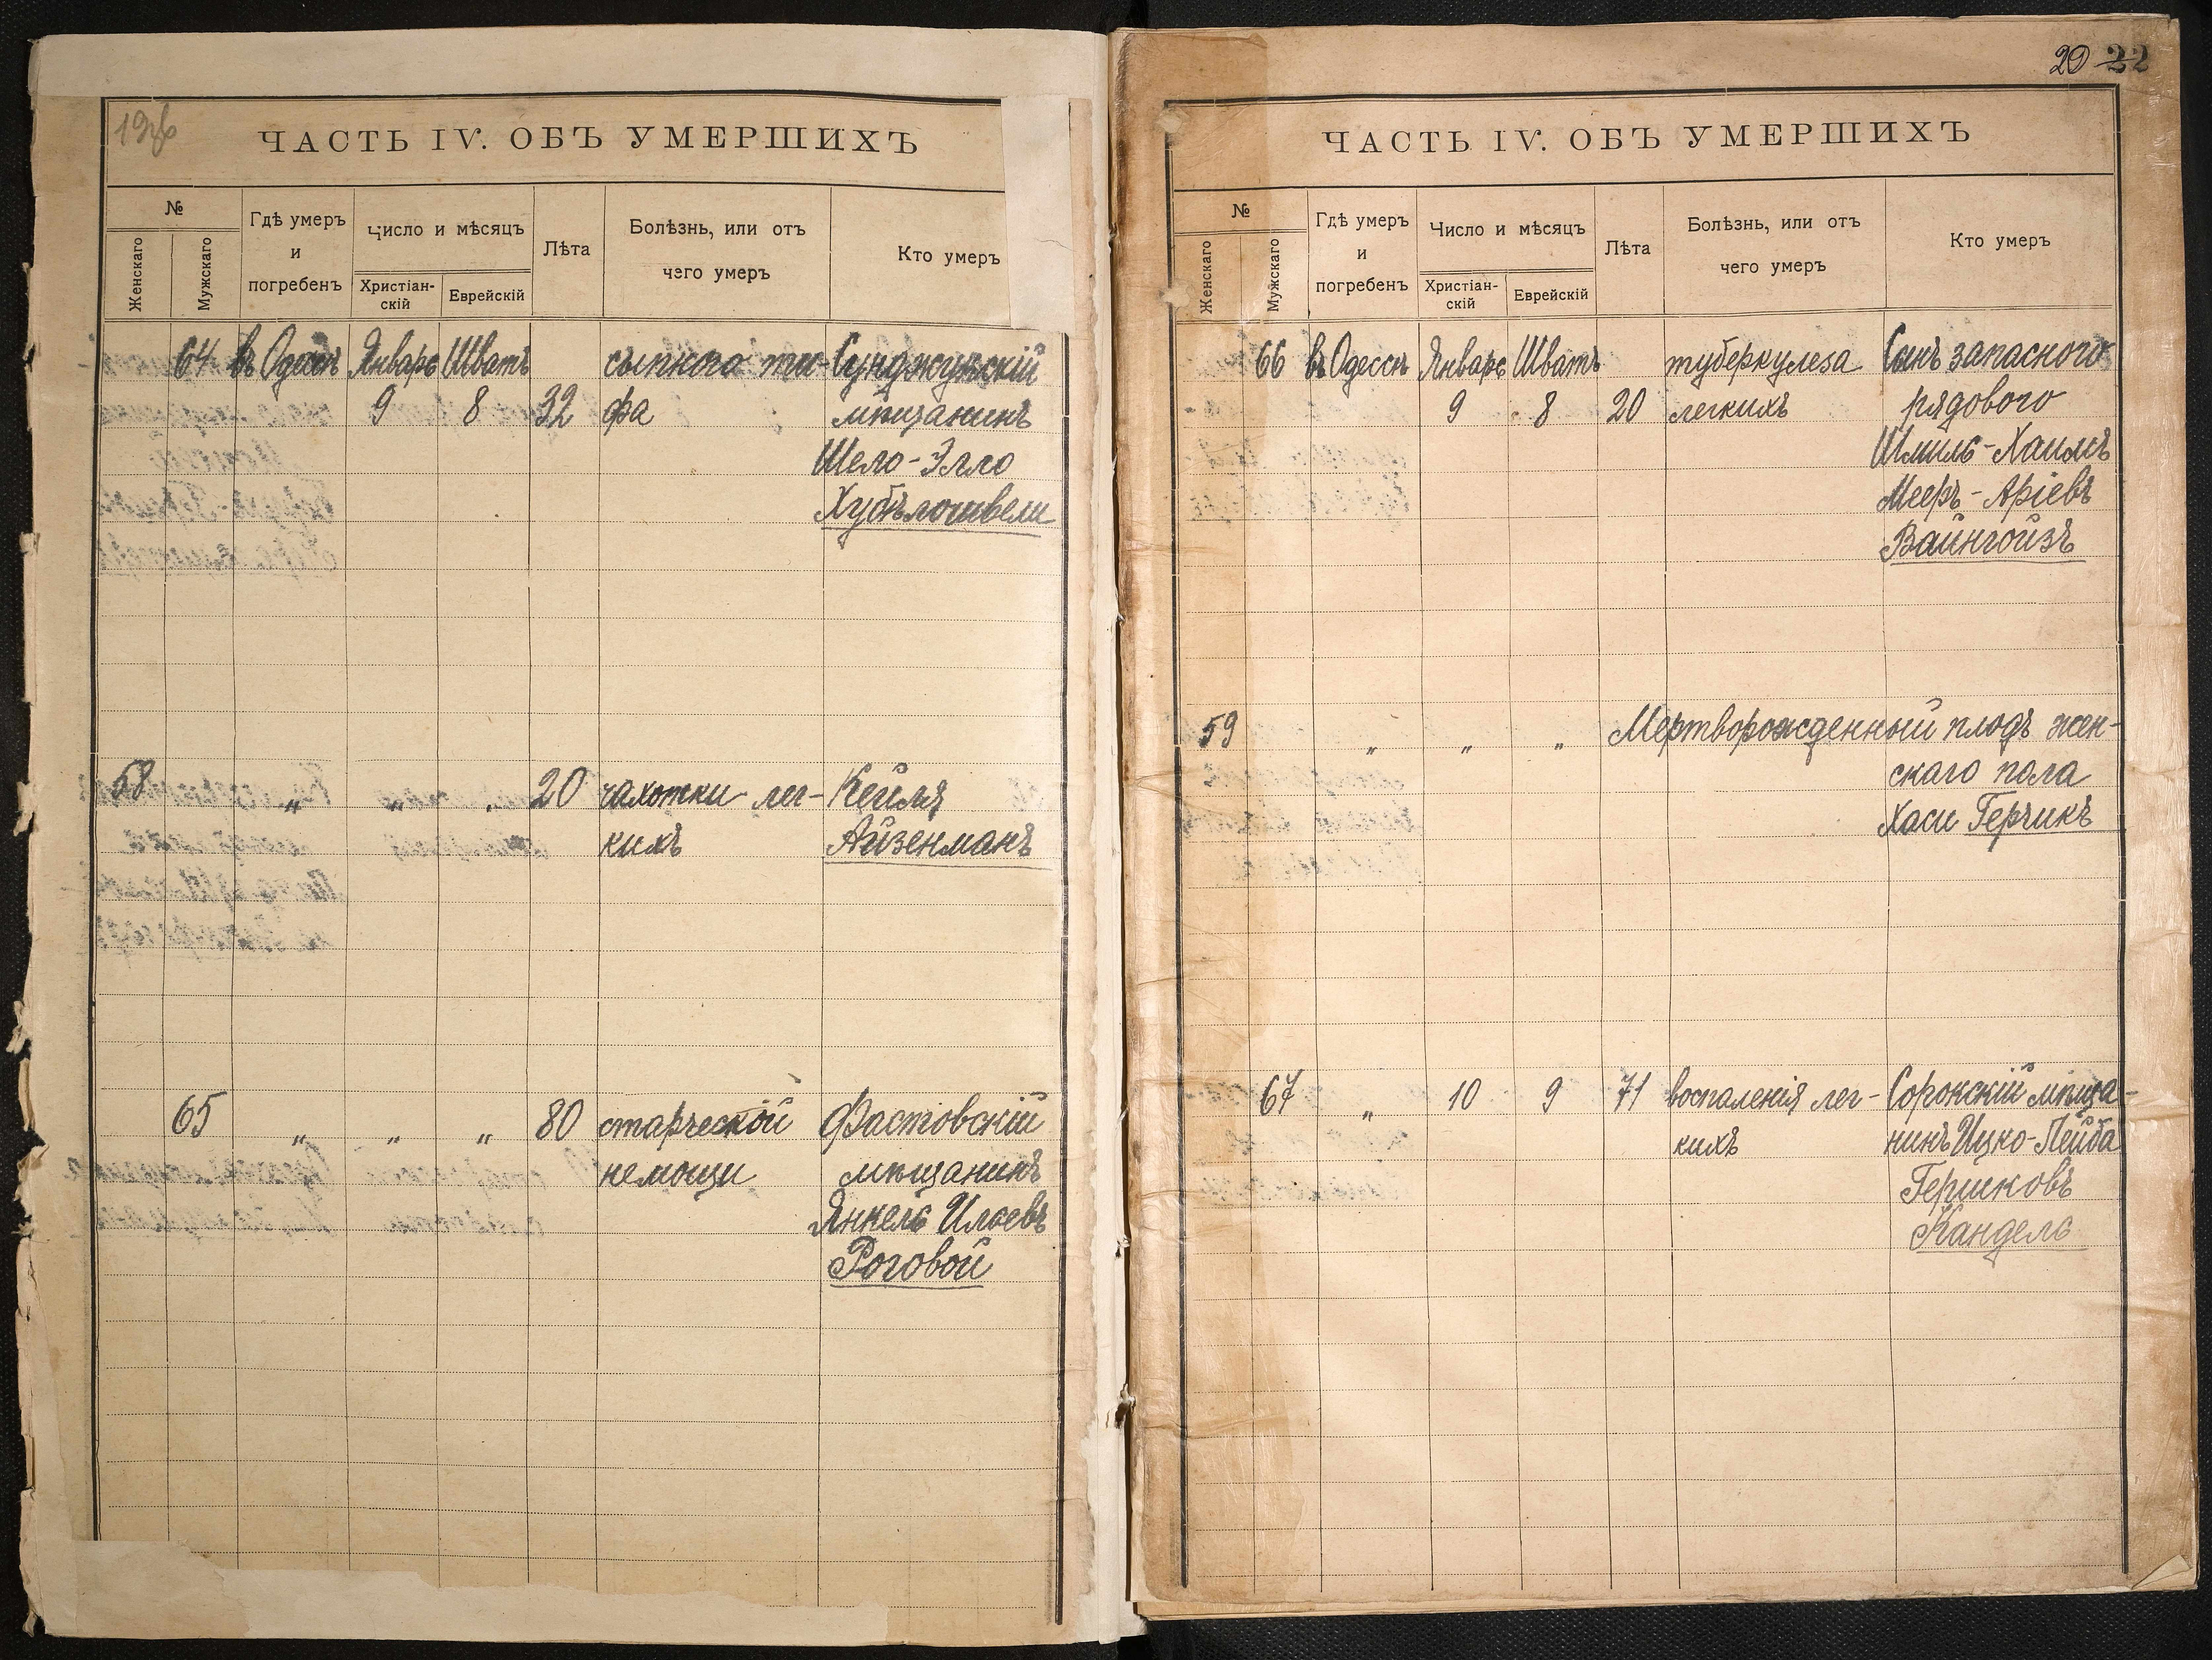 ЧАСТЬ IV. ОБЪ УМЕРШИХЪ
№
Женскаго
Мужскаго
Гдѣ умеръ
и
погребенъ
Число и мѣсяцъ
Христіан-
скій
Еврейскій
Лѣта
Болѣзнь, или отъ
чего умеръ
Кто умеръ
64 въ Одессѣ Январь Шватъ сыпного ти-
9 8 32 фа мѣщанинъ
Шело-Элло
58 „ „ „ 20 чахотки лег- Кейля
кихъ Айзенманъ
65 „ „ „ 80 старческой Фастовскій
немощи мѣщанинъ
Янкель Илоевъ
Роговой
20 22
ЧАСТЬ IV. ОБЪ УМЕРШИХЪ
№
Женскаго
Мужскаго
Гдѣ умеръ
и
погребенъ
Число и мѣсяцъ
Христіан-
скій
Еврейскій
Лѣта
Болѣзнь, или отъ
чего умеръ
Кто умеръ
66 въ Одессѣ Январь Шватъ туберкулеза Сынъ запасного
9 8 20 легкихъ рядового
Шмиль-Хаимъ
Мееръ-Аріевъ
Вайнгойзъ
59 „ „ „ Мертворожденный плодъ жен-
скаго пола
Хаси Герчикъ
67 „ 10 9 71 воспаленія лег- Сорокскій мѣща-
кихъ нинъ Ицко-Лейба
Гершковъ
Кандель